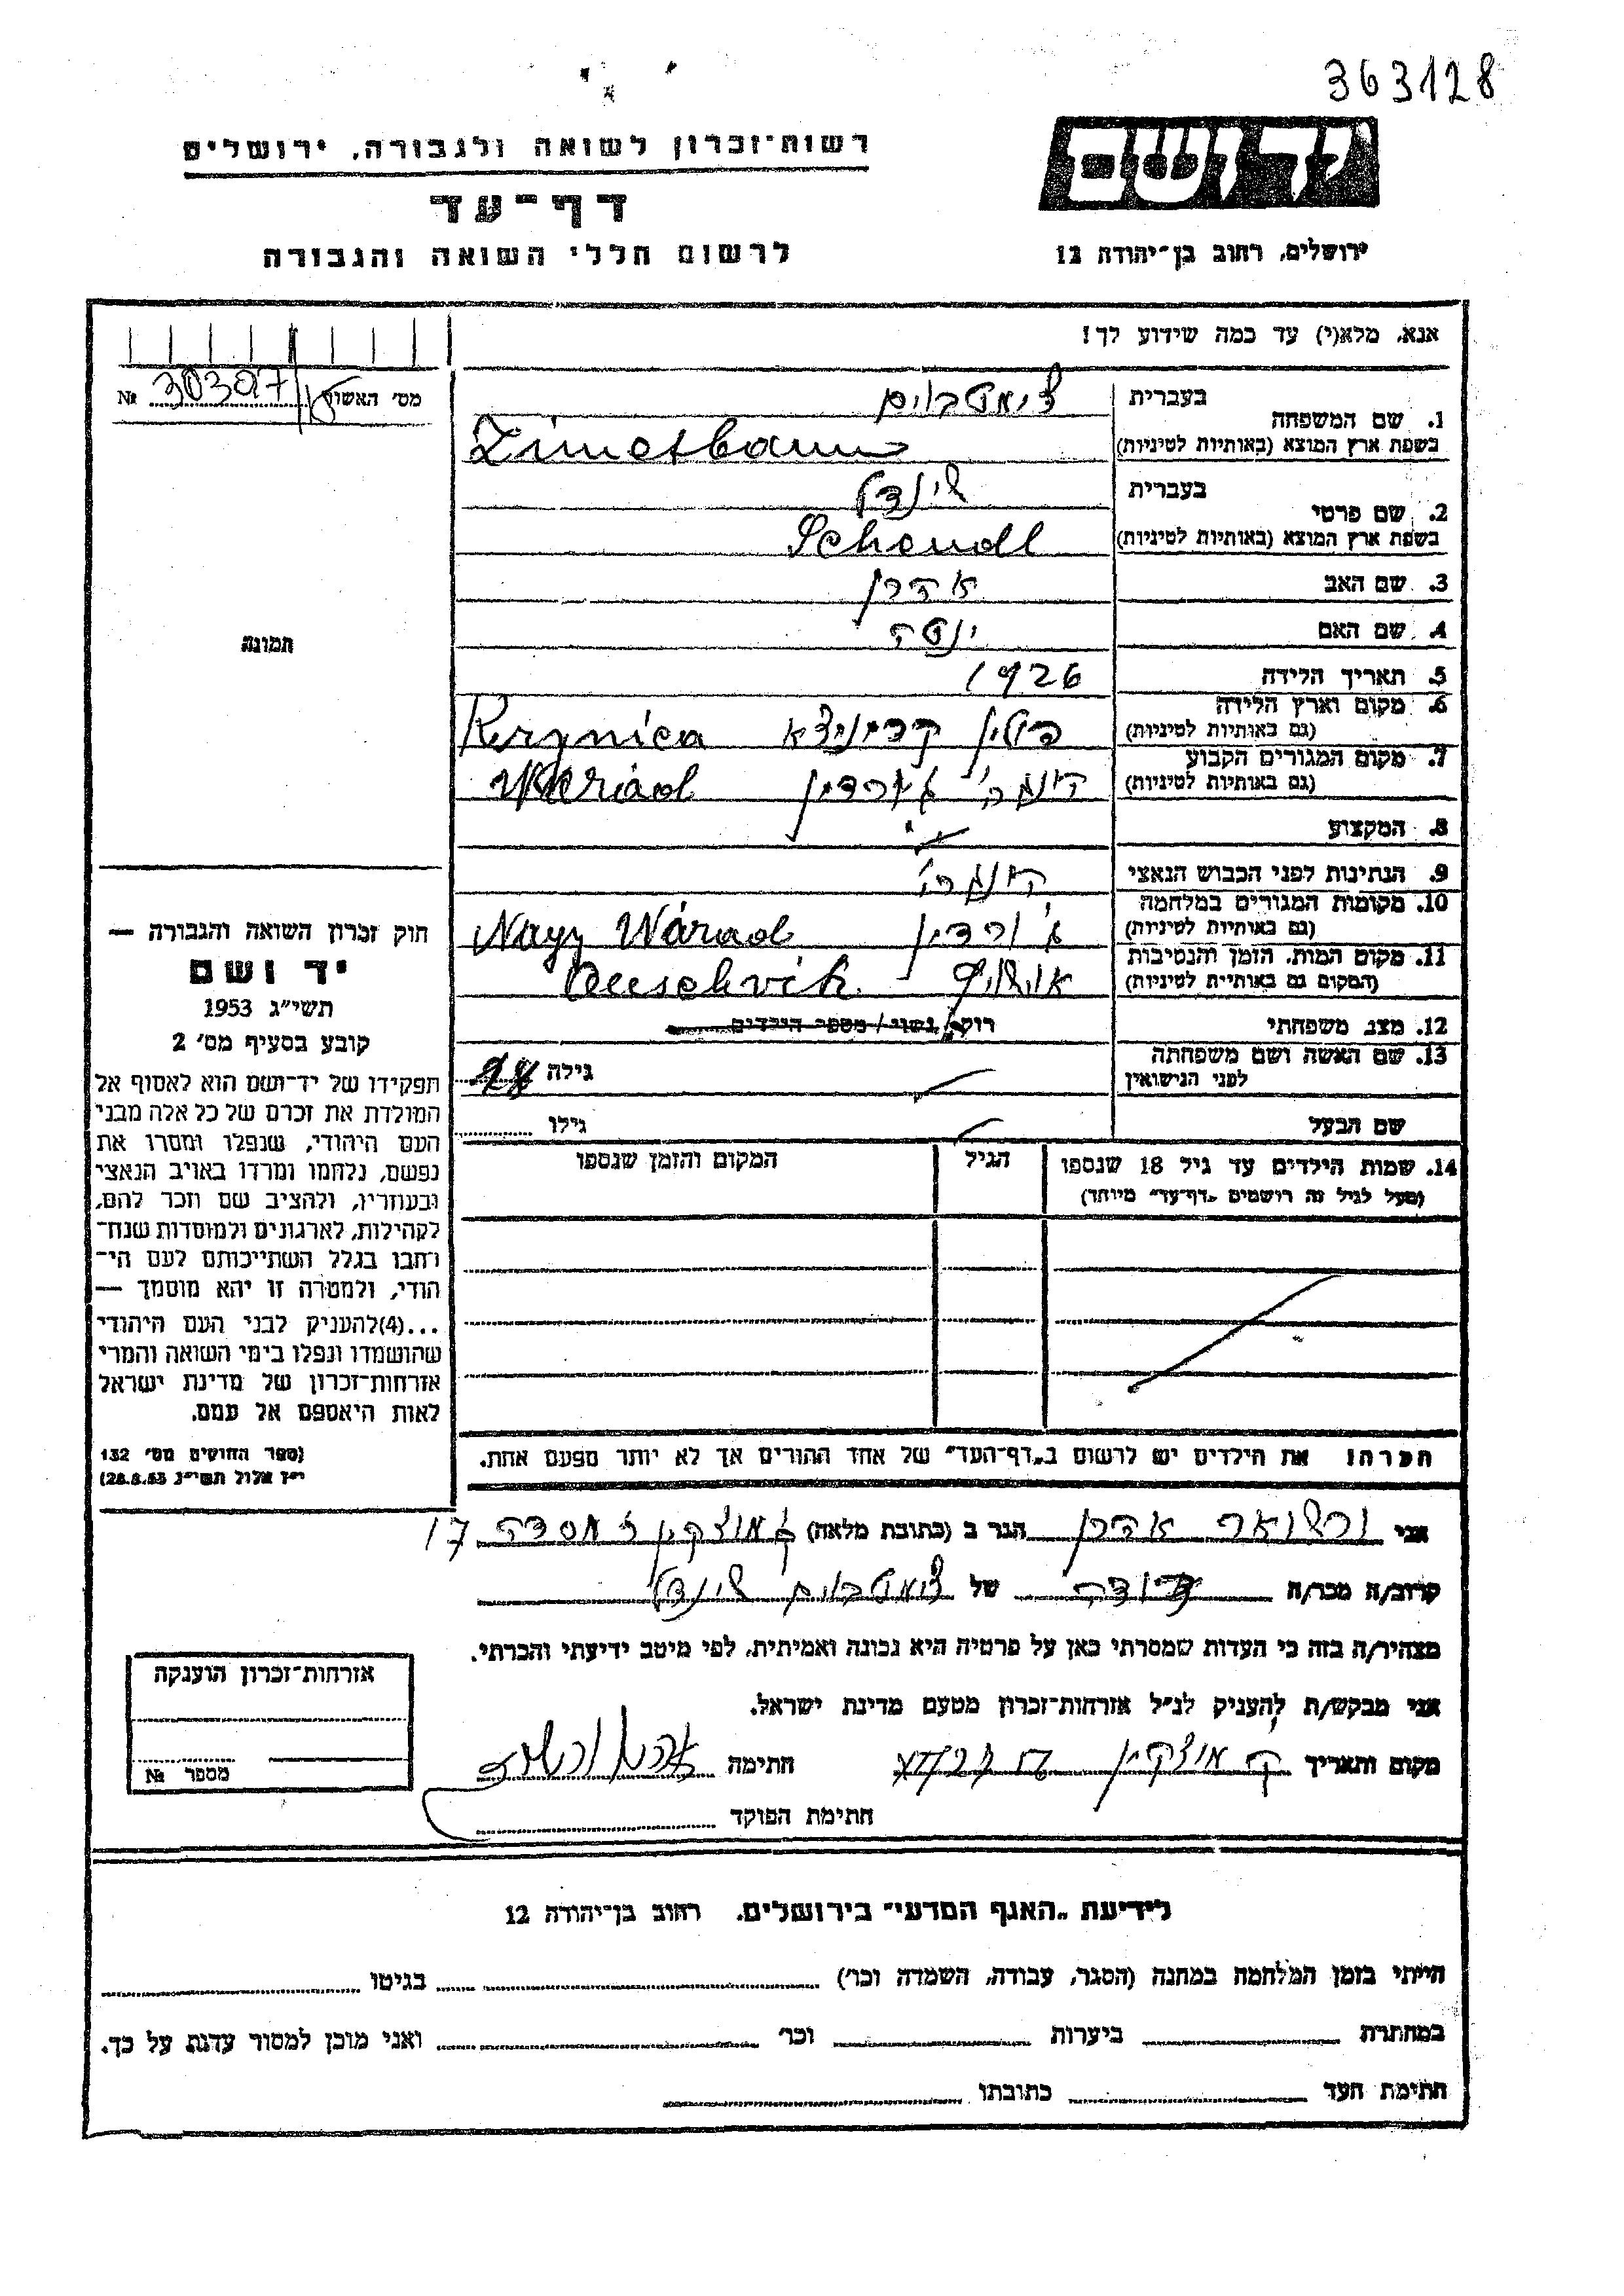 363128
יד ושם
ירושלים, רחוב בן־יהודה 12
רשות־זכרון לשואה ולגבורה, ירושלים
דף־עד
לרשום חללי השואה והגבורה
אנא, מלא(י) עד כמה שידוע לך!
מס׳ האשור № 30397
1. שם המשפחה
בעברית צימטבוים
בשפת ארץ המוצא (באותיות לטיניות) Zimetbaum
2. שם פרטי
בעברית שינדל
בשפת ארץ המוצא (באותיות לטיניות) Schendl
3. שם האב אהרן
4. שם האם ינטה
5. תאריך הלידה 1926
6. מקום וארץ הלידה
(גם באותיות לטיניות) פולין קריניצא Krynica
7. מקום המגורים הקבוע
(גם באותיות לטיניות) הונגרי׳ Warád
8. המקצוע
9. הנתינות לפני הכבוש הנאצי הונגרי׳
10. מקומות המגורים במלחמה
(גם באותיות לטיניות) ג׳ ורדין Nagy Wárad
11. מקום המות, הזמן והנסיבות
(המקום גם באותיות לטיניות) אושוויץ Auschvitz
12. מצב משפחתי רוק/ נשוי/ מספר הילדים
13. שם האשה ושם משפחתה
לפני הנישואין גילה 18
שם הבעל גילו
14. שמות הילדים עד גיל 18 שנספו הגיל המקום והזמן שנספו
(מעל לגיל זה רושמים „דף־עד״ מיוחד)
הערה: את הילדים יש לרשום ב„דף־העד״ של אחד ההורים אך לא יותר מפעם אחת.
תמונה
חוק זכרון השואה והגבורה —
יד ושם
תשי״ג 1953
קובע בסעיף מס׳ 2
תפקידו של יד־ושם הוא לאסוף אל
המולדת את זכרם של כל אלה מבני
העם היהודי, שנפלו ומסרו את
נפשם, נלחמו ומרדו באויב הנאצי
ובעוזריו, ולהציב שם וזכר להם,
לקהילות, לארגונים ולמוסדות שנח־
רחבו בגלל השתייכותם לעם הי־
הודי, ולמטרה זו יהא מוסמך —
...(4)להעניק לבני העם היהודי
שהושמדו ונפלו בימי השואה והמרי
אזרחות־זכרון של מדינת ישראל
לאות היאספם אל עמם.
(ספר החוקים מס׳ 132
י״ז אלול תשי״ג 28.8.53)
אני ורשואר אהרן הגר ב (כתובת מלאה) ק. מוצקין מסדה 17
קרוב/ה מכר/ה דודה של צימטבוים שינדל
מצהיר/ה בזה כי העדות שמסרתי כאן על פרטיה היא נכונה ואמיתית, לפי מיטב ידיעתי והכרתי.
אני מבקש/ת להעניק לנ״ל אזרחות־זכרון מטעם מדינת ישראל.
מקום ותאריך ק. מוצקין חתימה
חתימת הפוקד
אזרחות־זכרון הוענקה
מספר №
לידיעת „האגף המדעי״ בירושלים, רחוב בן־יהודה 12
הייתי בזמן המלחמה במחנה (הסגר, עבודה, השמדה וכו׳) בגיטו
במחתרת ביערות וכו׳ ואני מוכן למסור עדות על כך.
חתימת העד כתובתו